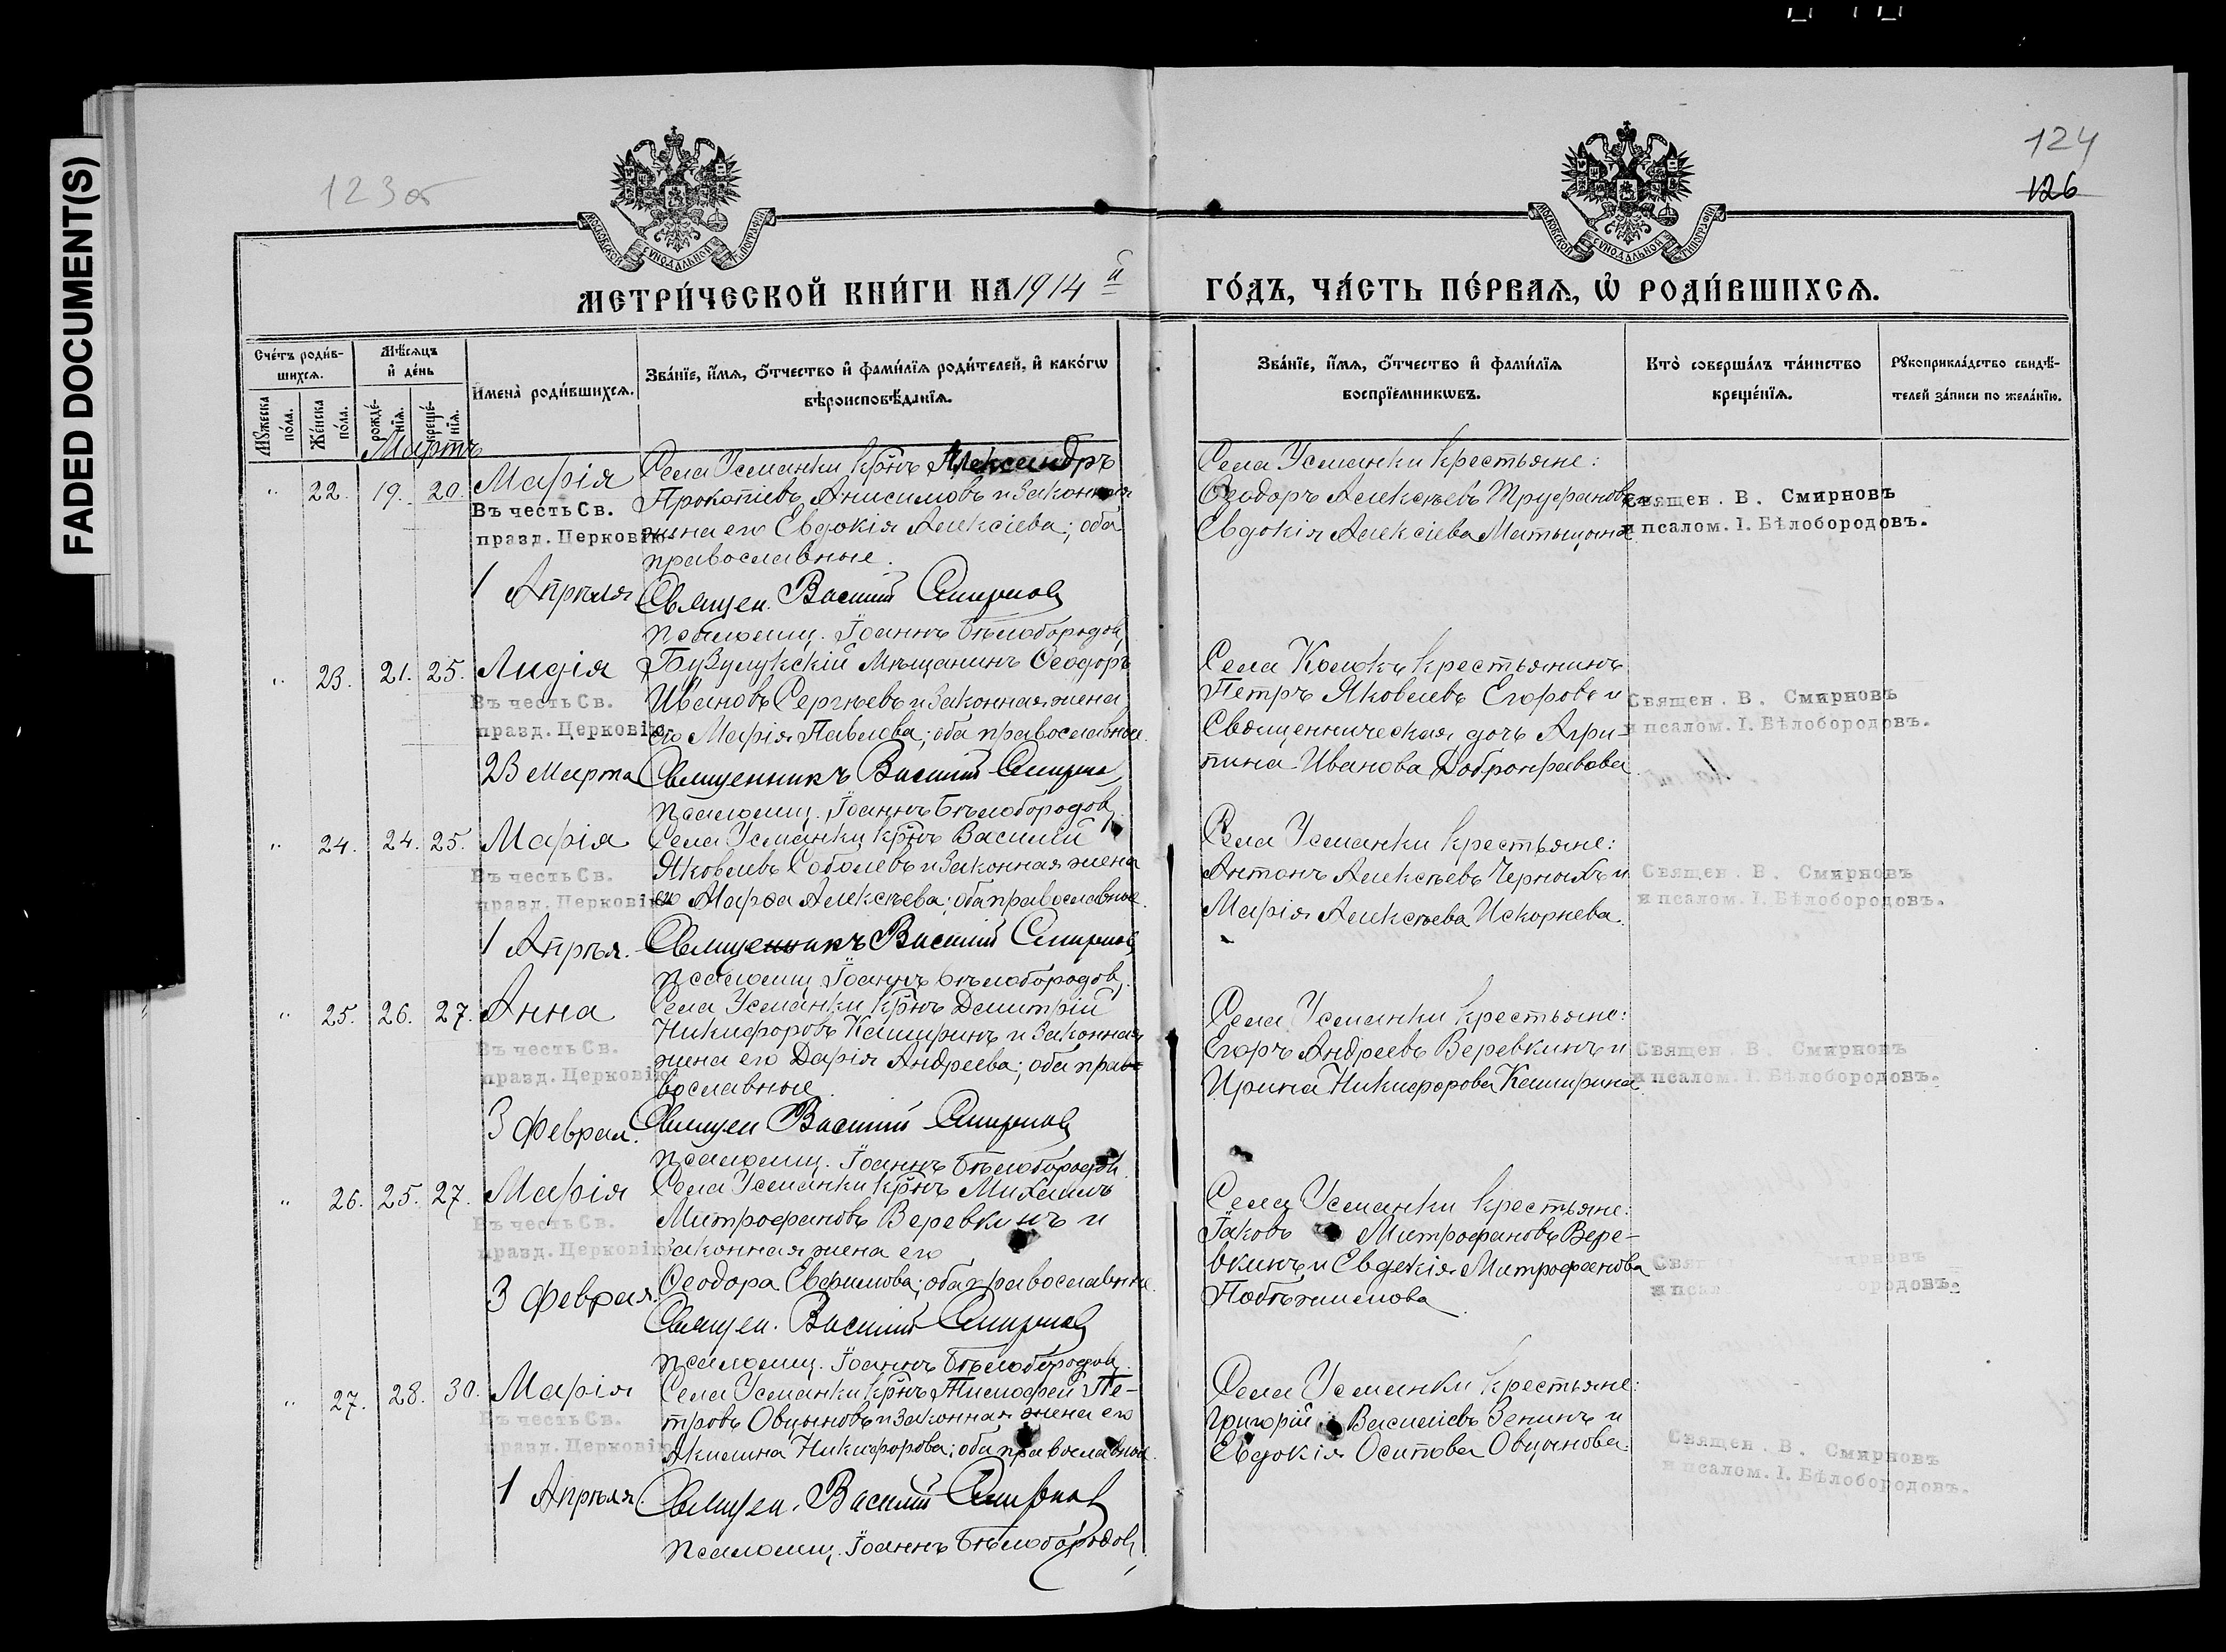 FADED DOCUMENT(S)
123об
124
126
МОСКОВСКОЙ СѴНОДАЛЬНОЙ ТИПОГРАФІИ
МОСКОВСКОЙ СѴНОДАЛЬНОЙ ТИПОГРАФІИ
МЕТРИ́ЧЕСКОЙ КНИ́ГИ НА 1914 й
ГО́ДЪ, ЧА́СТЬ ПЕ́РВАѦ, Ѡ РОДИ́ВШИХСѦ.
Счетъ родив-
шихсѧ.
Мѣсѧцъ
и день
Имена родившихсѧ.
Званіе, имѧ, отчество и фамиліѧ родителей, и какогѡ
вѣроисповѣданіѧ.
Мꙋжеска
пола.
Женска
пола.
рожде-
ніѧ.
креще-
ніѧ.
Званіе, имѧ, отчество и фамиліѧ
воспріемникѡвъ.
Кто совершалъ таинство
крещеніѧ.
Рꙋкоприкладство свидѣ-
телей записи по желанію.
Мартъ
" 22. 19. 20. Марія
Въ честь Св.
празд. Церковію
1 Апрѣля
Села Усманки кр-нъ Александръ
Прокопіевъ Анисимовъ и законная
жена его Евдокія Алексіева; оба
православные.
Священ. Василій Смирновъ
Псаломщ. Іоаннъ Бѣлобородовъ
Села Усманки крестьяне:
Ѳеодоръ Алексѣевъ Труфановъ и
Евдокія Алексіева Матыцина
Священ. В. Смирновъ
и псалом. І. Бѣлобородовъ.
" 23. 21. 25. Лидія
Въ честь Св.
празд. Церковію
23 Марта
Бузулукскій мѣщанинъ Ѳеодоръ
Ивановъ Сергѣевъ и законная жена
его Марія Павлова; оба православные.
Священникъ Василій Смирновъ
Псаломщ. Іоаннъ Бѣлобородовъ
Села Колокъ крестьянинъ
Петръ Яковлевъ Егоровъ и
Священническая дочь Агри-
пина Иванова Добронравова.
Священ. В. Смирновъ
и псалом. І. Бѣлобородовъ.
" 24. 24. 25. Марія
Въ честь Св.
празд. Церковію
1 Апрѣл.
Села Усманки кр-нъ Василій
Яковлевъ Соболевъ и законная жена
его Марѳа Алексѣева; оба православные.
Священникъ Василій Смирновъ
Псаломщ Іоаннъ Бѣлобородовъ.
Села Усманки крестьяне:
Антонъ Алексѣевъ Черныхъ и
Марія Алексѣева Искорнева.
Священ. В. Смирновъ
и псалом. І. Бѣлобородовъ.
" 25. 26. 27. Анна
Въ честь Св.
празд. Церковію
3 Феврал.
Села Усманки кр-нъ Димитрій
Никифоровъ Каширинъ и законная
жена его Дарія Андреева; оба пра-
вославные.
Священ Василій Смирновъ
Псаломщ. Іоаннъ Бѣлобородовъ
Села Усманки крестьяне:
Егоръ Андреевъ Веревкинъ и
Ирина Никифорова Каширина.
Священ. В. Смирновъ
и псалом. І. Бѣлобородовъ.
" 26. 25. 27. Марія
Въ честь Св.
празд. Церковію
3 Феврал.
Села Усманки кр-нъ Михаилъ
Митрофановъ Веревкинъ и
законная жена его
Ѳеодора Евфимова; оба православные.
Священ. Василій Смирновъ
Псаломщ. Іоаннъ Бѣлобородовъ.
Села Усманки крестьяне:
Іаковъ Митрофановъ Вере-
вкинъ и Евдокія Митрофанова
Побѣжимова.
Свящ рновъ
и псал ородовъ.
" 27. 28. 30. Марія
Въ честь Св.
празд. Церковію
1 Апрѣля.
Села Усманки кр-нъ Тимофей Пе-
тровъ Овцыновъ и законная жена его
Акилина Никифорова; оба православные.
Священ. Василій Смирновъ
Псаломщ. Іоаннъ Бѣлобородовъ
Села Усманки крестьяне:
Григорій Василіевъ Зенинъ и
Евдокія Осипова Овцынова.
Священ. В. Смирновъ
и псалом. І. Бѣлобородовъ.